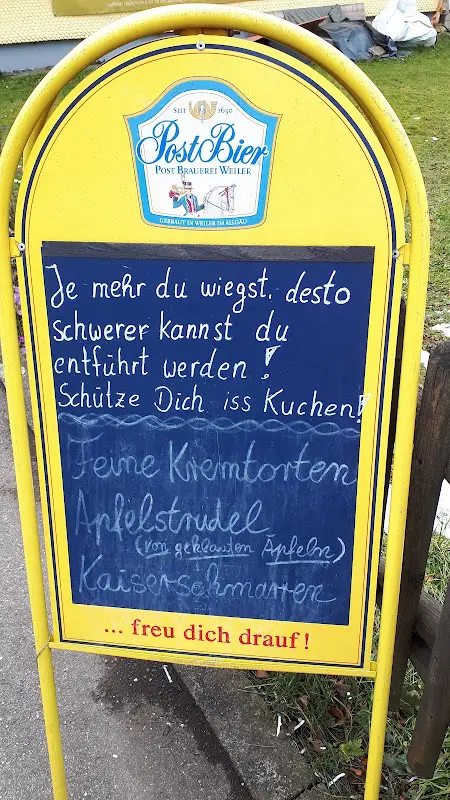 SEIT 1650
Post Bier
POST BRAUEREI WEILER
GEBRAUT IN WEILER IM ALLGÄU
Je mehr du wiegst, desto
schwerer kannst du
entführt werden!
Schütze Dich iss Kuchen!
Feine Kremtorten
Apfelstrudel
(von geklauten Äpfeln)
Kaiserschmarren
... freu dich drauf!